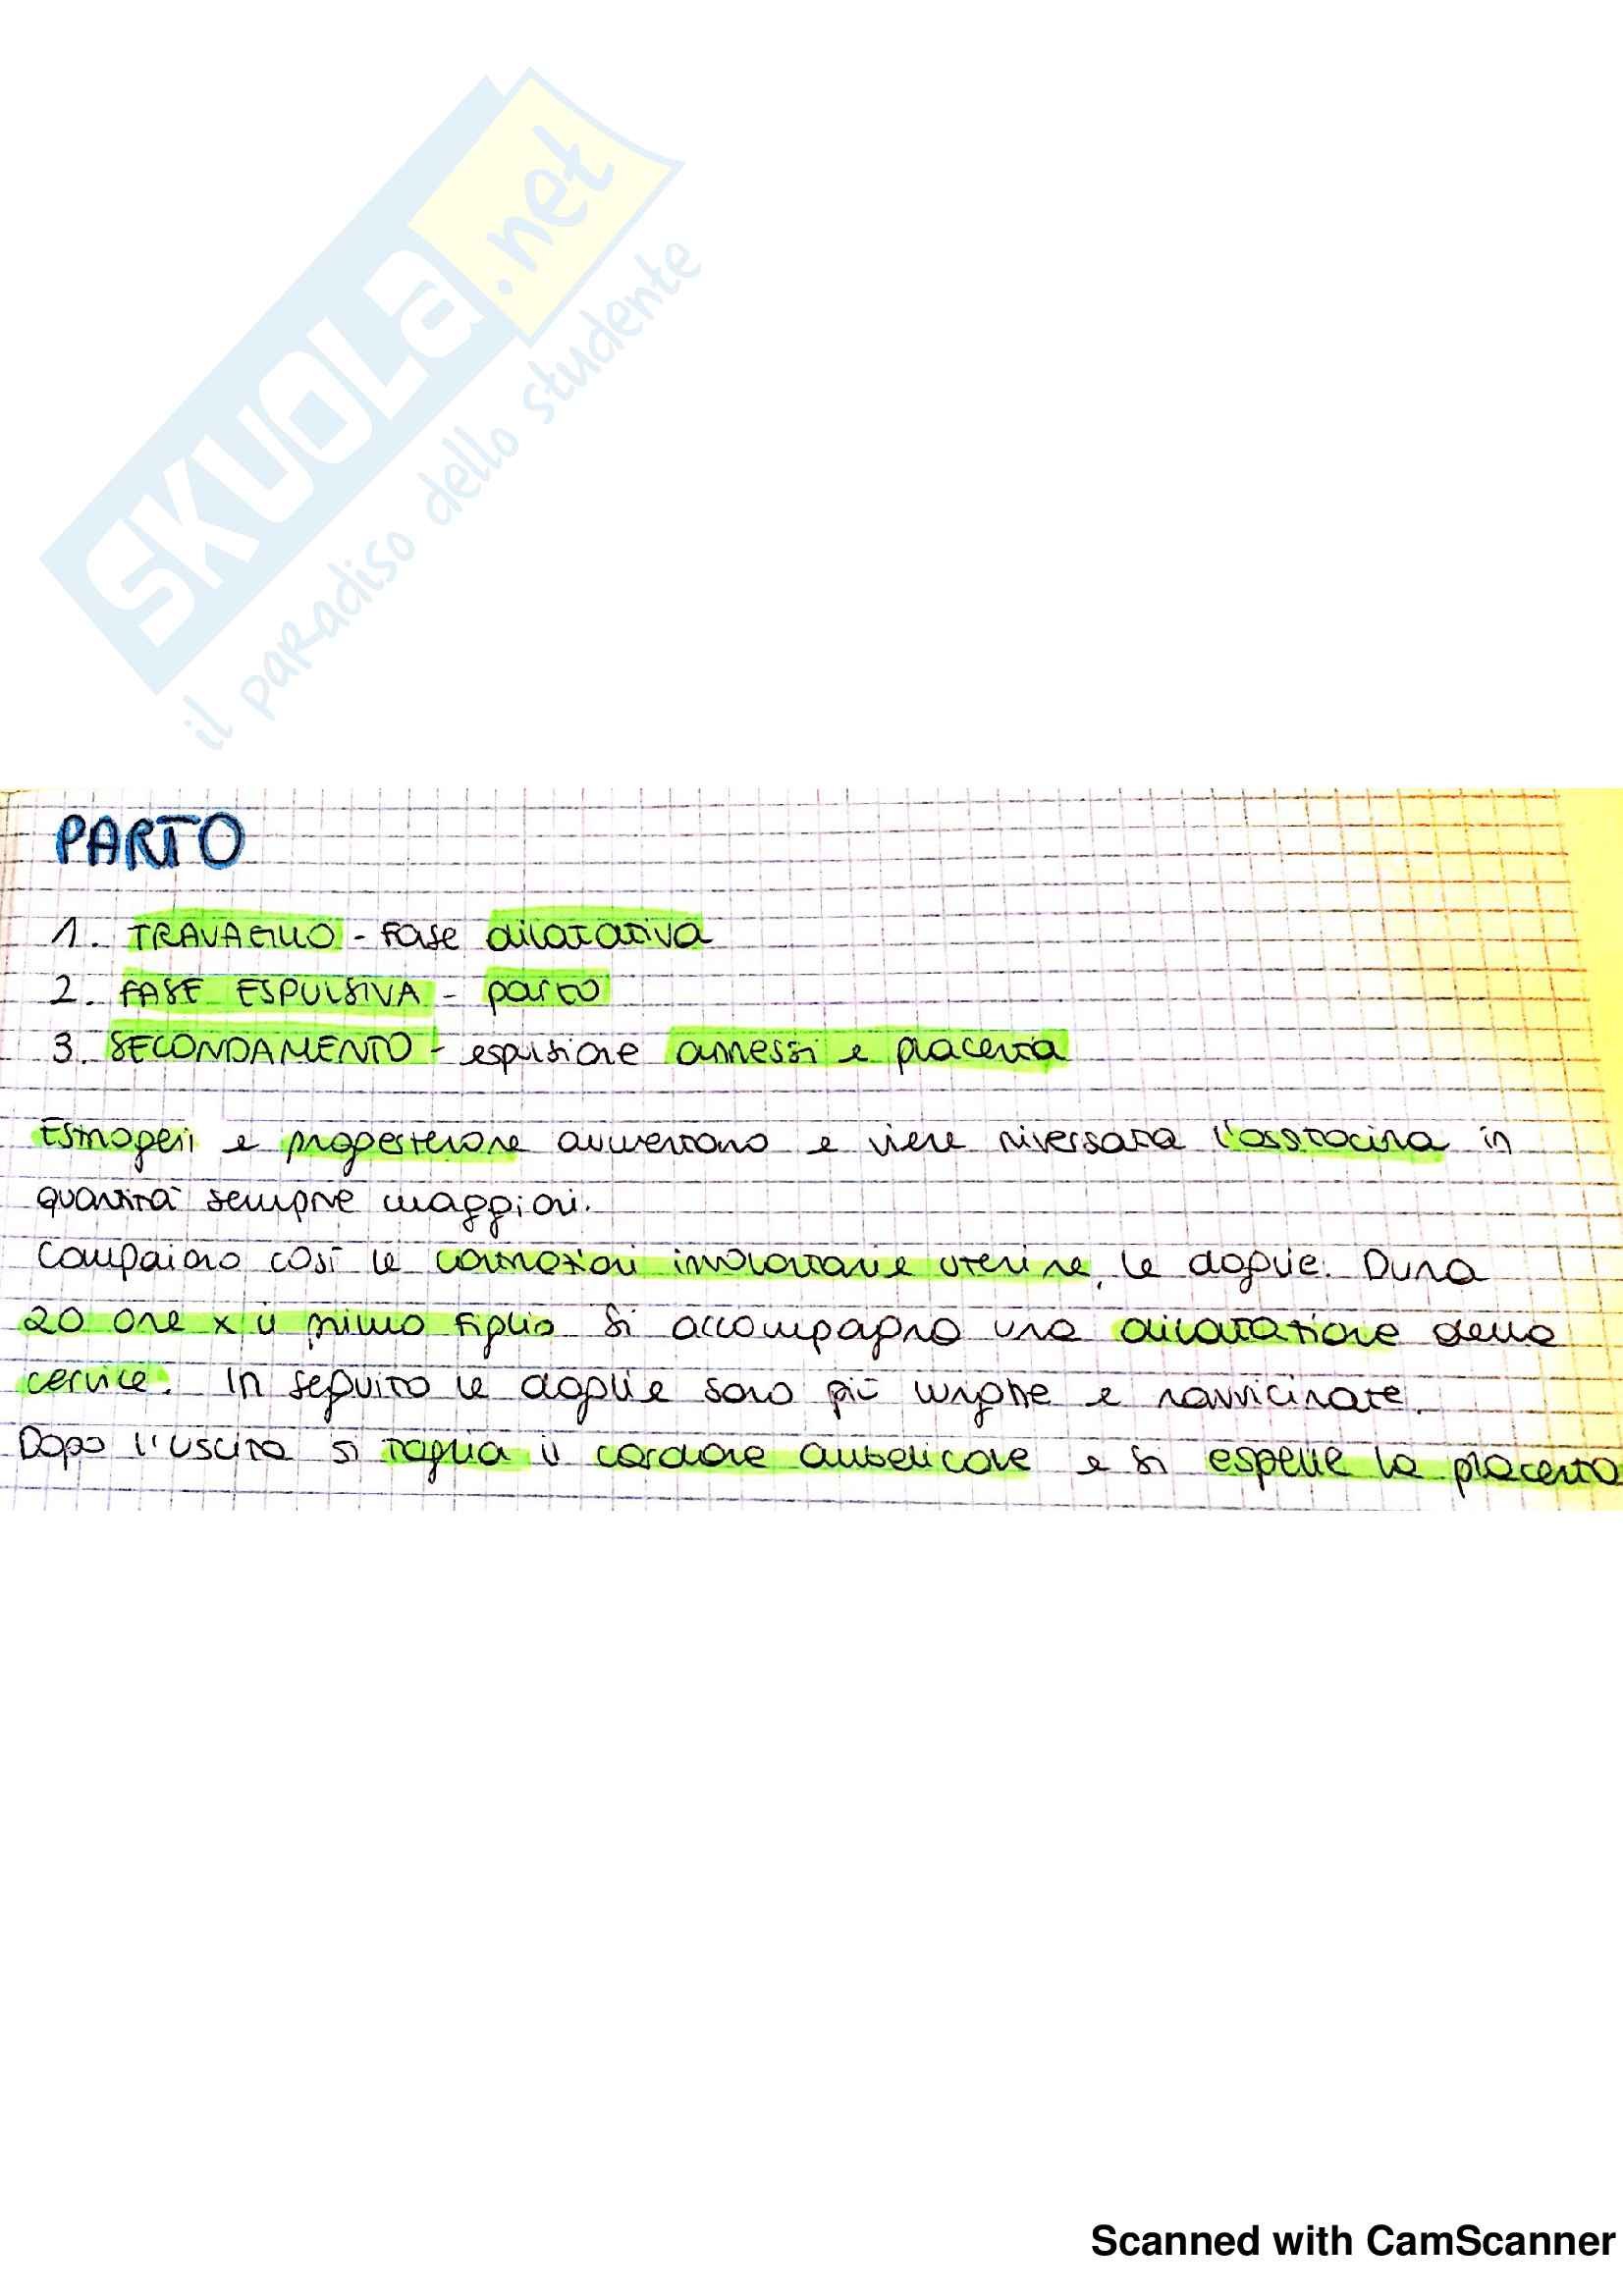 SKUOLA.net
il paradiso dello studente
PARTO
1. TRAVAGLIO - fase dilatativa
2. FASE ESPULSIVA - parto
3. SECONDAMENTO - espulsione annessi e placenta
Estrogeni e progesterone aumentano e viene riversata l'ossitocina in
quantità sempre maggiori.
Compaiono così le contrazioni involontarie uterine, le doglie. Dura
20 ore x il primo figlio si accompagna una dilatazione della
cervice. In seguito le doglie sono più lunghe e ravvicinate.
Dopo l'uscita si taglia il cordone ombelicale e si espelle la placenta
Scanned with CamScanner